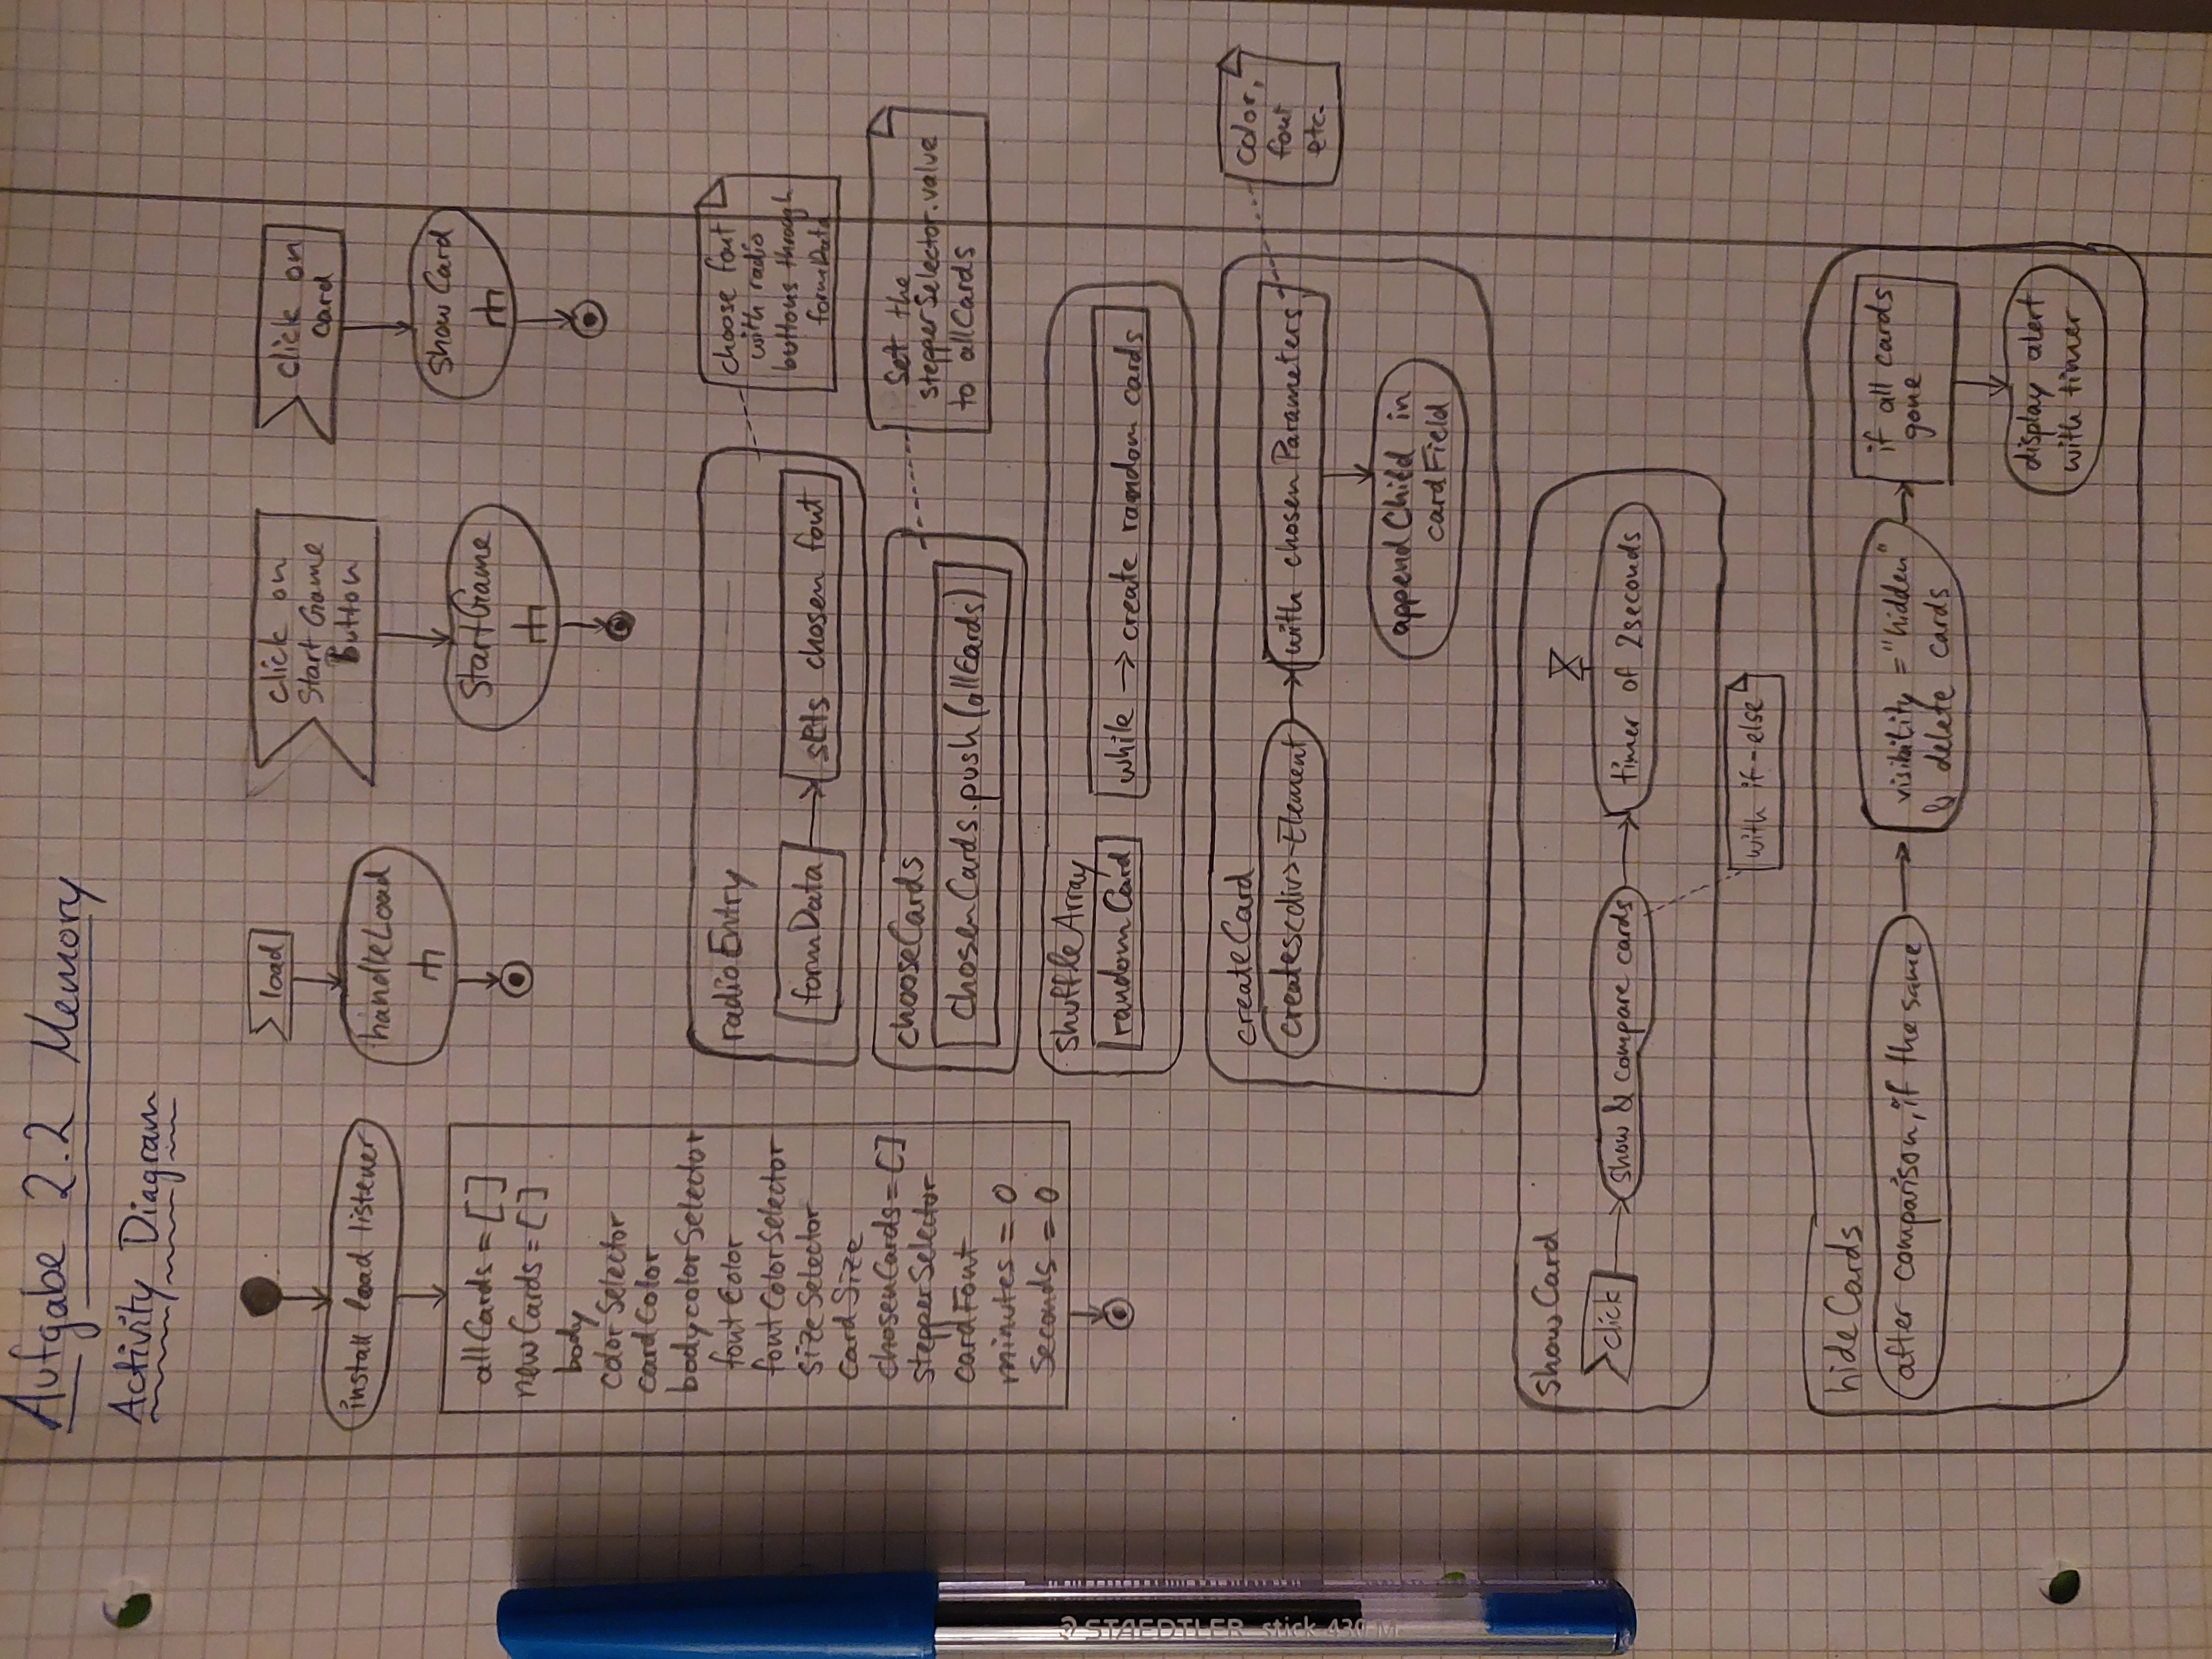 Aufgabe 2.2 Memory
Activity Diagram
install load listener
allCards = []
newCards = []
body
colorSelector
cardColor
bodycolorSelector
fontColor
fontColorSelector
sizeSelector
cardSize
chosenCards = []
stepperSelector
cardFont
minutes = 0
seconds = 0
load
handleLoad
click on
Start Game
Button
StartGame
click on
card
showCard
radioEntry
formData
sets chosen font
choose font
with radio
buttons through
formData
chooseCards
chosenCards.push(allCards)
Set the
stepperSelector.value
to allCards
shuffleArray
randomCard
while → create random cards
createCard
creates<div>-Element
with chosen Parameters
color,
font
etc.
appendChild in
cardField
showCard
click
show & compare cards
timer of 2seconds
with if-else
hideCards
after comparison, if the same
visibility = "hidden"
& delete cards
if all cards
gone
display alert
with timer
STAEDTLER stick 430 M